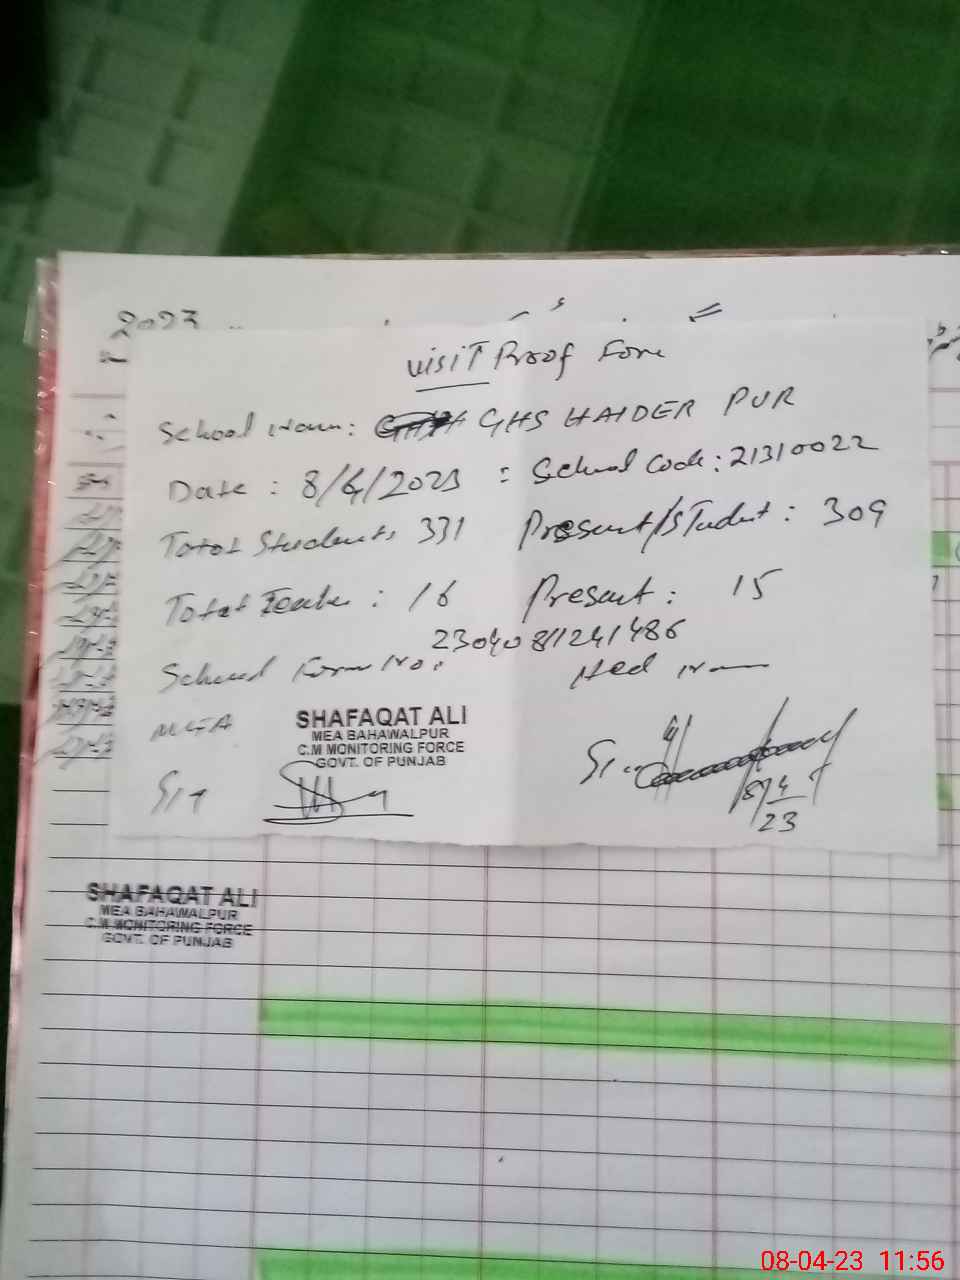 2023
Visit Proof Form
School Name: GHS HAIDER PUR
Date : 8/4/2023 = School Code : 21310022
Total Students 331 Present/Student : 309
Total Teacher : 16 Present : 15
School Form No. 23040811241486
Hed Nam
MEA
SHAFAQAT ALI
MEA BAHAWALPUR
C.M MONITORING FORCE
GOVT. OF PUNJAB
8/4
23
SHAFAQAT ALI
MEA BAHAWALPUR
C.M MONITORING FORCE
GOVT. OF PUNJAB
08-04-23 11:56